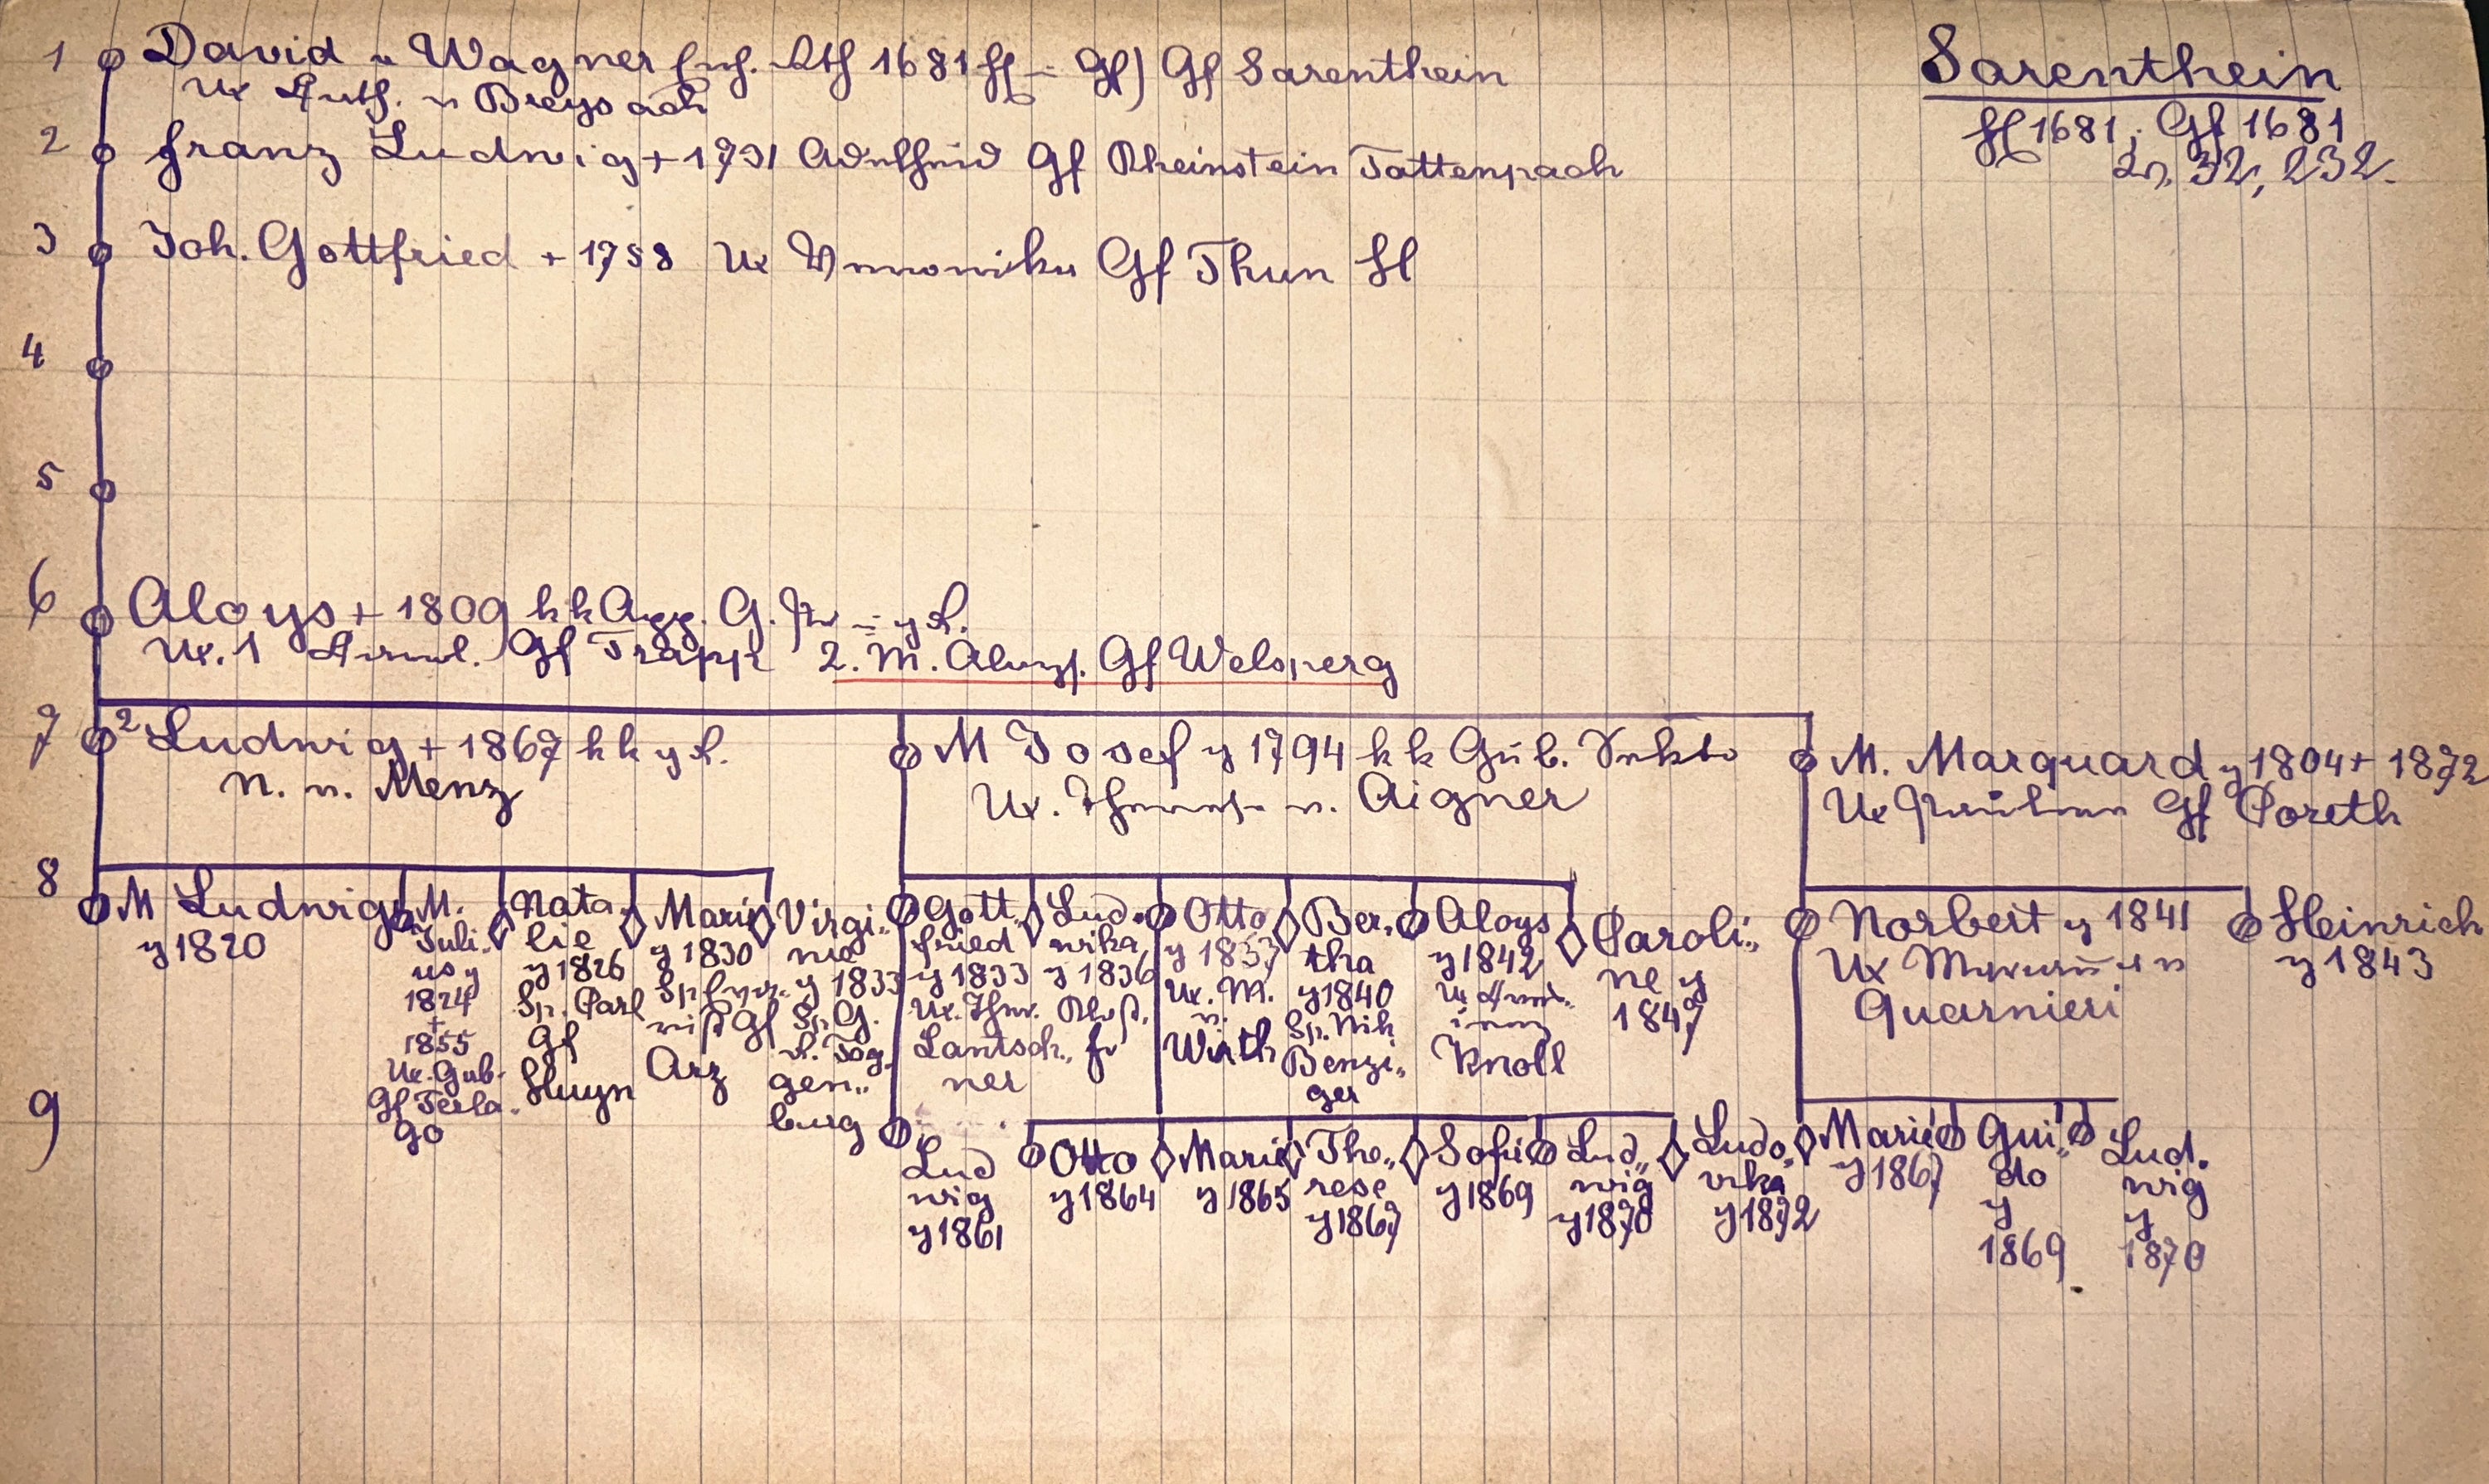 Sarenthein
Hf 1681, Gf 1681
32, 232.
1 David v Wagner 1681 Hf - Gf) Gf Sarenthein
Ux v Breysach
2 Franz Ludwig + 1731 Gf Rheinstein Tattenpach
3 Joh. Gottfried + 1758 Ux Gf Thun Hl
4
5
6 Aloys + 1809 k k App. G.
Ux. 1 Gf Trapp 2. M. Aloys. Gf Welsperg
7 2 Ludwig + 1867 k k
N. v. Menz
M Josef y 1794 k k Gub.
Ux. v. Aigner
M. Marquard y 1804 + 1872
Ux Gf Coreth
8 M Ludwig
y 1820
M.
Juli„
us y
1824
+
1855
Ux. Gab.
Gf Terla„
go
Nata„
lie
y 1826
Sp. Carl
Gf
Huyn
Marie
y 1830
Sp
Gf
Arz
Virgi„
nie
y 1833
Sp. G.
v. Tog„
gen„
burg
Gott„
fried
y 1833
Ux.
Lantsch„
ner
Ludo„
wika
y 1836
Otto
y 1837
Ux. M.
v.
Wirth
Ber„
tha
y 1840
Sp. Nik
Benzi„
ger
Aloys
y 1842
Ux
Knoll
Caroli„
ne y
1847
Norbert y 1841
Ux
Guarnieri
Heinrich
y 1843
9
Lud
wig
y 1861
Otto
y 1864
Marie
y 1865
The„
rese
y 1867
Sofie
y 1869
Lud„
wig
y 1870
Ludo„
vika
y 1872
Marie
y 1867
Gui„
do
y
1869
Lud.
wig
y
1870